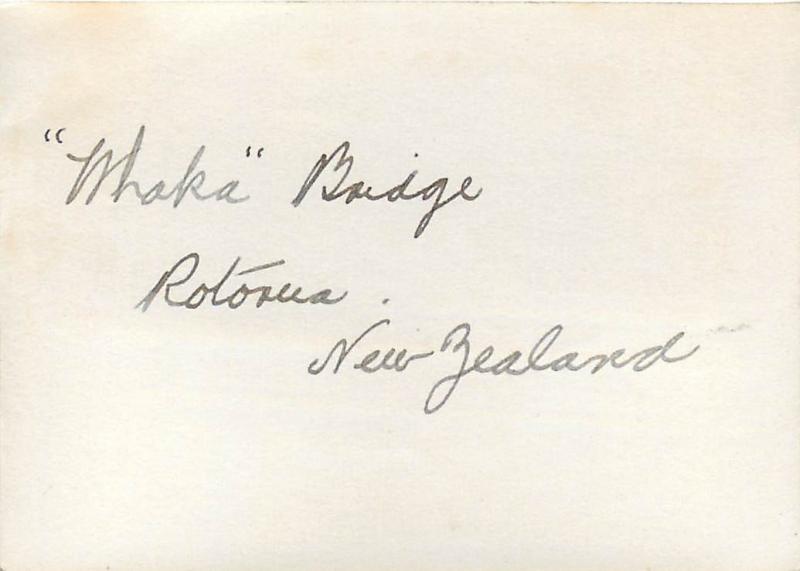 "Whaka" Bridge
Rotorua.
New Zealand